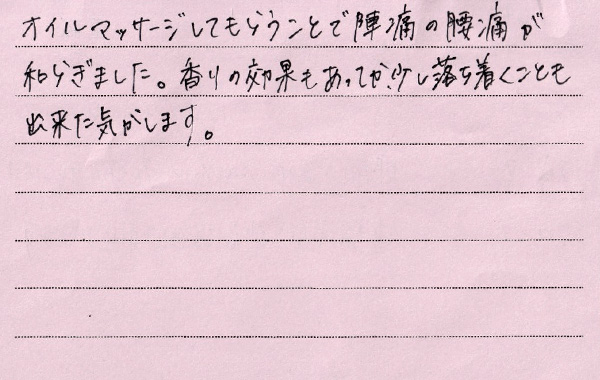 オイルマッサージしてもらうことで陣痛の腰痛が
和らぎました。香りの効果もあってか少し落ち着くことも
出来た気がします。